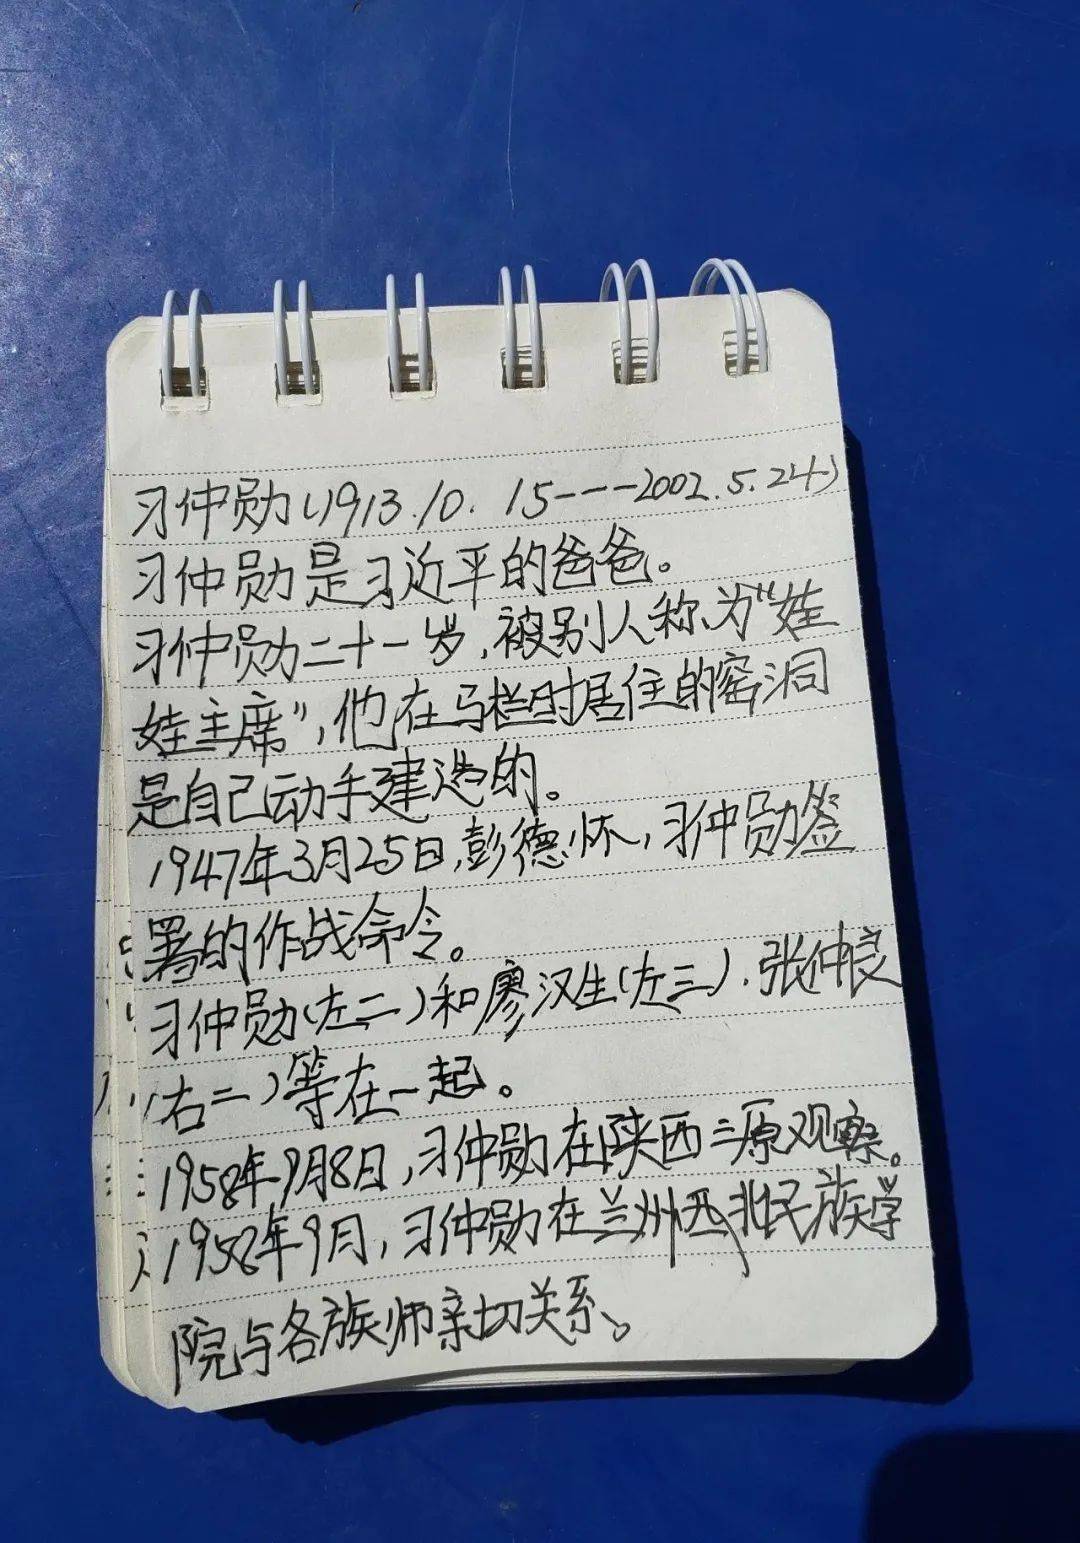 习仲勋(1913.10.15----2002.5.24)
习仲勋是习近平的爸爸。
习仲勋二十一岁,被别人称为“娃
娃主席”,他在马栏时居住的窑洞
是自己动手建造的。
1947年3月25日,彭德怀,习仲勋签
署的作战命令。
习仲勋(左二)和廖汉生(左三).张仲良
(右二)等在一起。
1958年9月8日,习仲勋在陕西三原观察。
1958年9月,习仲勋在兰州西北民族学
院与各族师亲切关系。